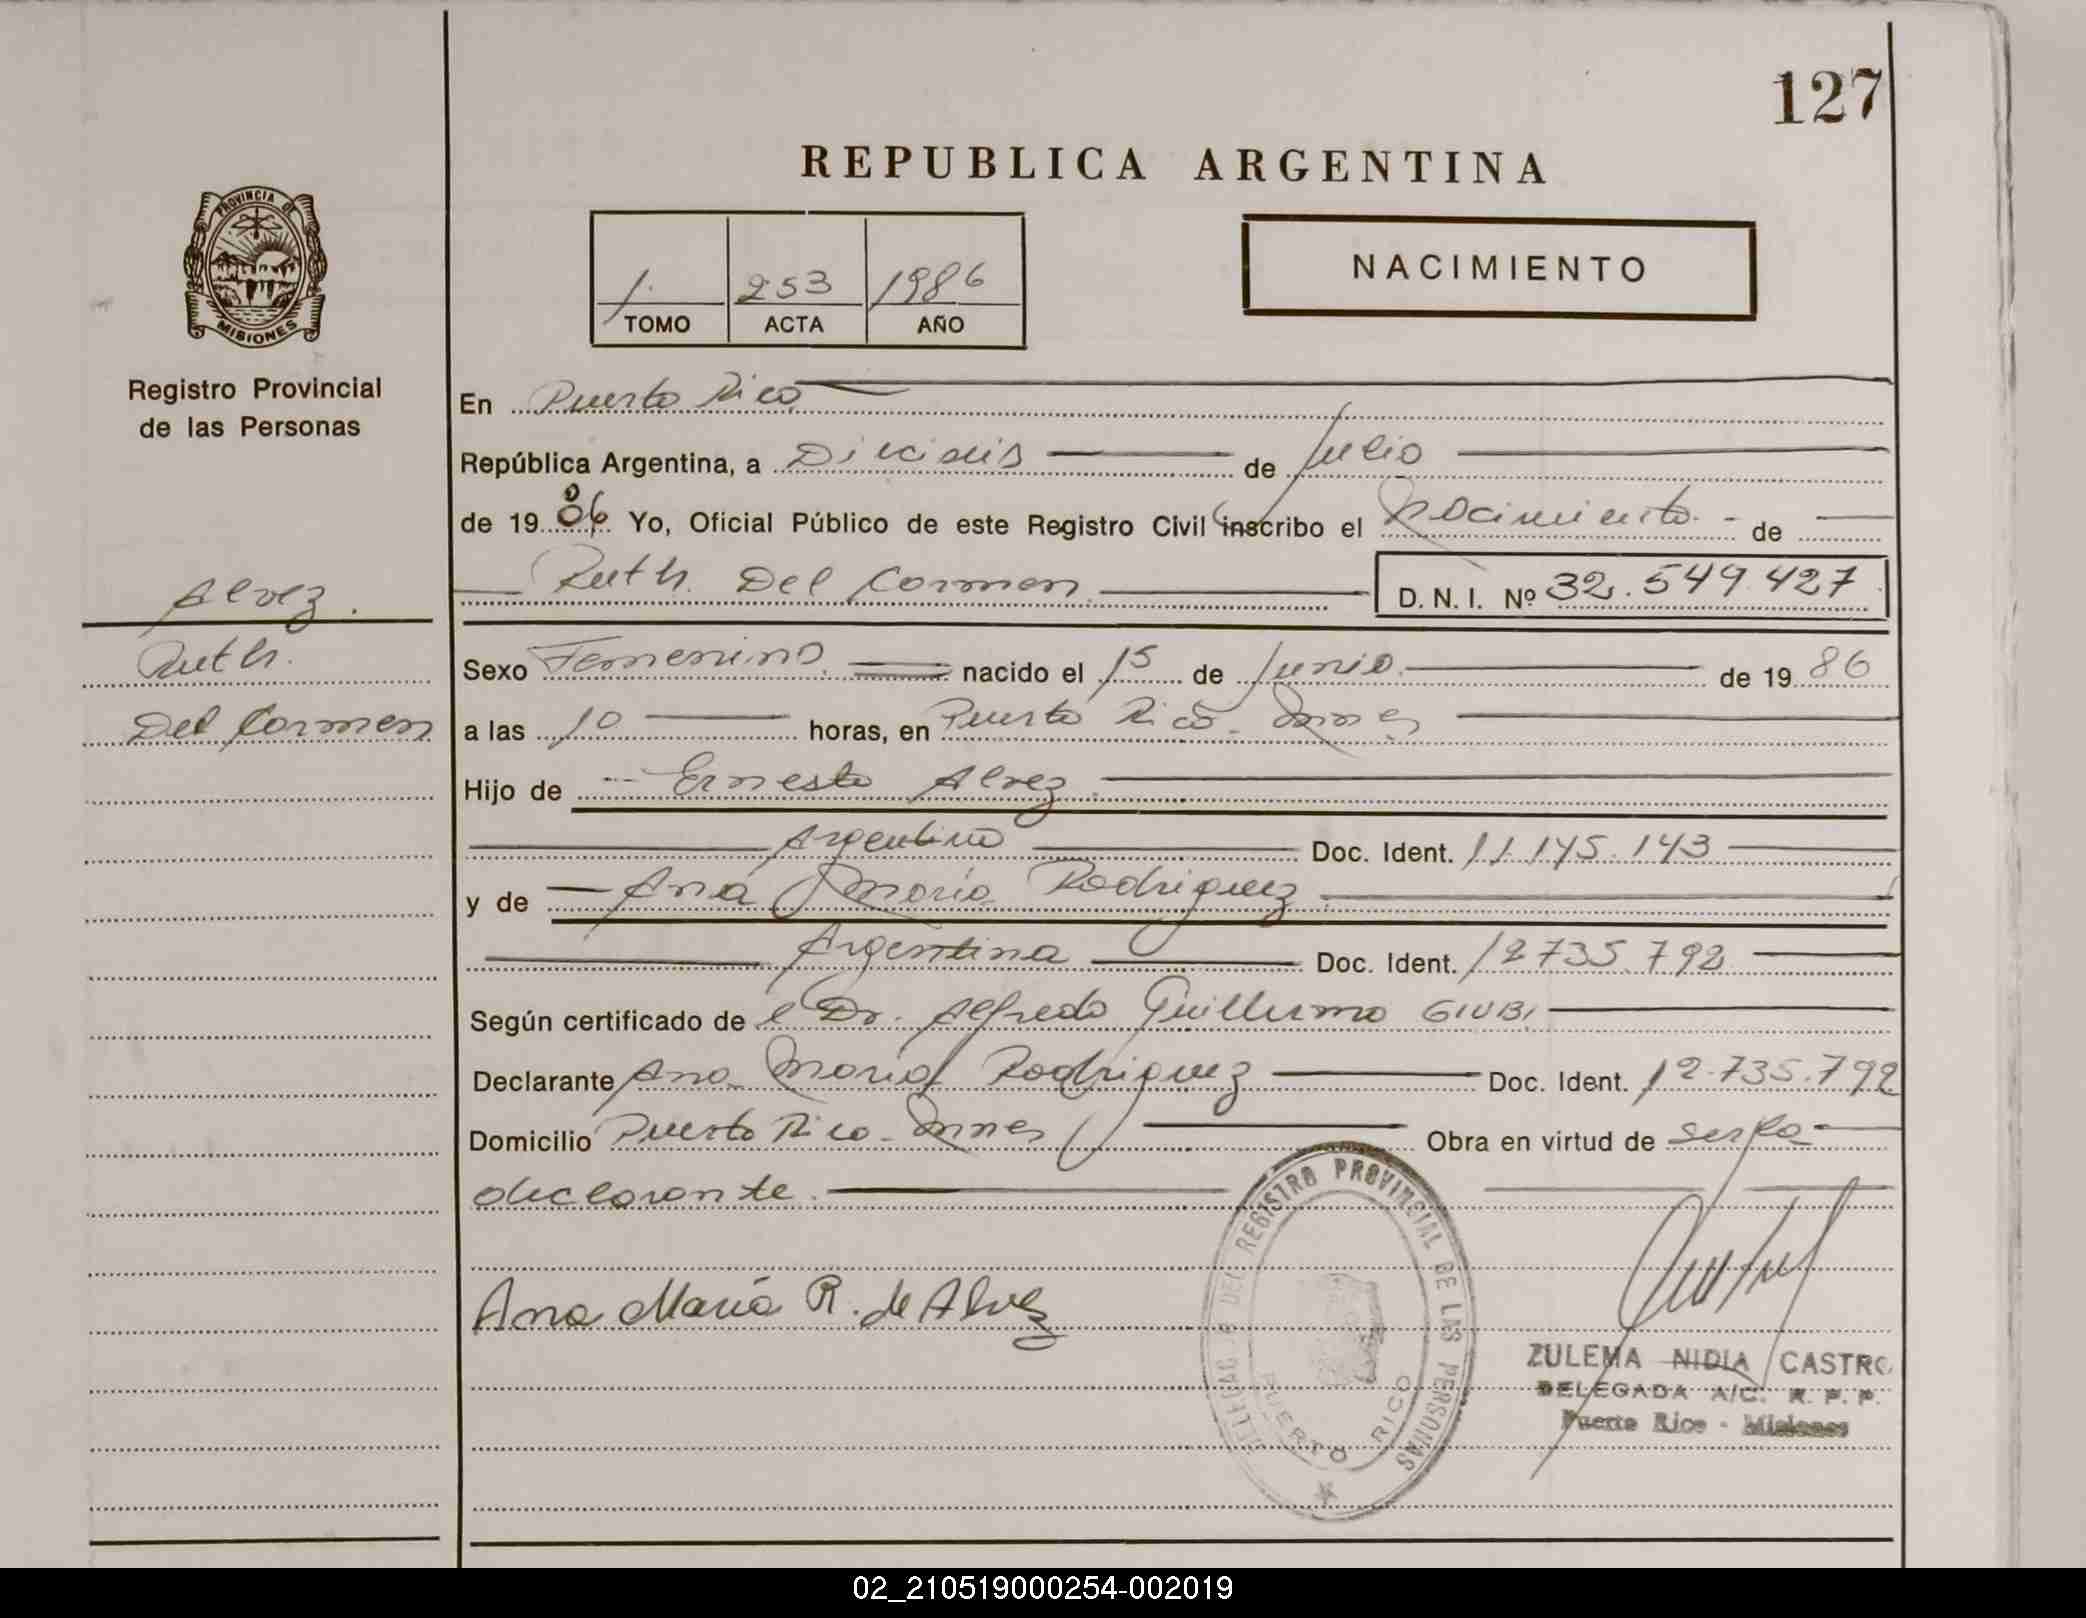 127
REPUBLICA ARGENTINA
PROVINCIA DE
MISIONES
1. 253 1986
TOMO ACTA AÑO
NACIMIENTO
Registro Provincial
de las Personas
En Puerto Rico
República Argentina, a Dieciseis de Julio
de 19 86 Yo, Oficial Público de este Registro Civil inscribo el Nacimiento - de
Ruth Del Carmen D. N. I. Nº 32.549.427
Alvez.
Ruth.
Del Carmen
Sexo Femenino. nacido el 15 de Junio. de 19 86
a las 10 horas, en Puerto Rico - Mnes
Hijo de Ernesto Alvez.
Argentino Doc. Ident. 11.145.143
y de Ana María Rodriguez.
Argentina Doc. Ident. 12735.792
Según certificado de el Dr. Alfredo Guillermo GIUBI
Declarante Ana María Rodriguez Doc. Ident. 12.735.792
Domicilio Puerto Rico - Mnes Obra en virtud de ser la
declarante.
Ana María R. de Alvez
DELEGAC. DEL REGISTRO PROVINCIAL DE LAS PERSONAS
PUERTO RICO
ZULEMA NIDIA CASTRO
DELEGADA A/C. R. P. P.
Puerto Rico - Misiones
02_210519000254-002019